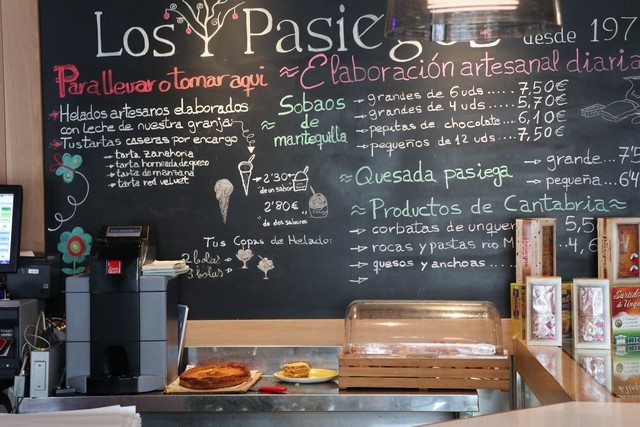 Los Pasiegos desde 197
Para llevar o tomar aqui
≈ Elaboración artesanal diaria
→ Helados artesanos elaborados
con leche de nuestra granja
→ Tus tartas caseras por encargo
→ tarta zanahoria
→ tarta horneada de queso
→ tarta de manzana
→ tarta red velvet
2'30€
"de un sabor"
2'80€
"de dos sabores"
Tus Copas de Helado:
2 bolas
3 bolas
≈ Sobaos de mantequilla
→ grandes de 6 uds..... 7,50€
→ grandes de 4 uds.... 5,70€
→ pepitas de chocolate.... 6,10€
→ pequeños de 12 uds.... 7,50€
≈ Quesada pasiega
→ grande.... 7'5
→ pequeña... 6'4
≈ Productos de Cantabria ≈
→ corbatas de unquer 5,5
→ rocas y pastas rio M 4,6
→ quesos y anchoas......
→
Surtido